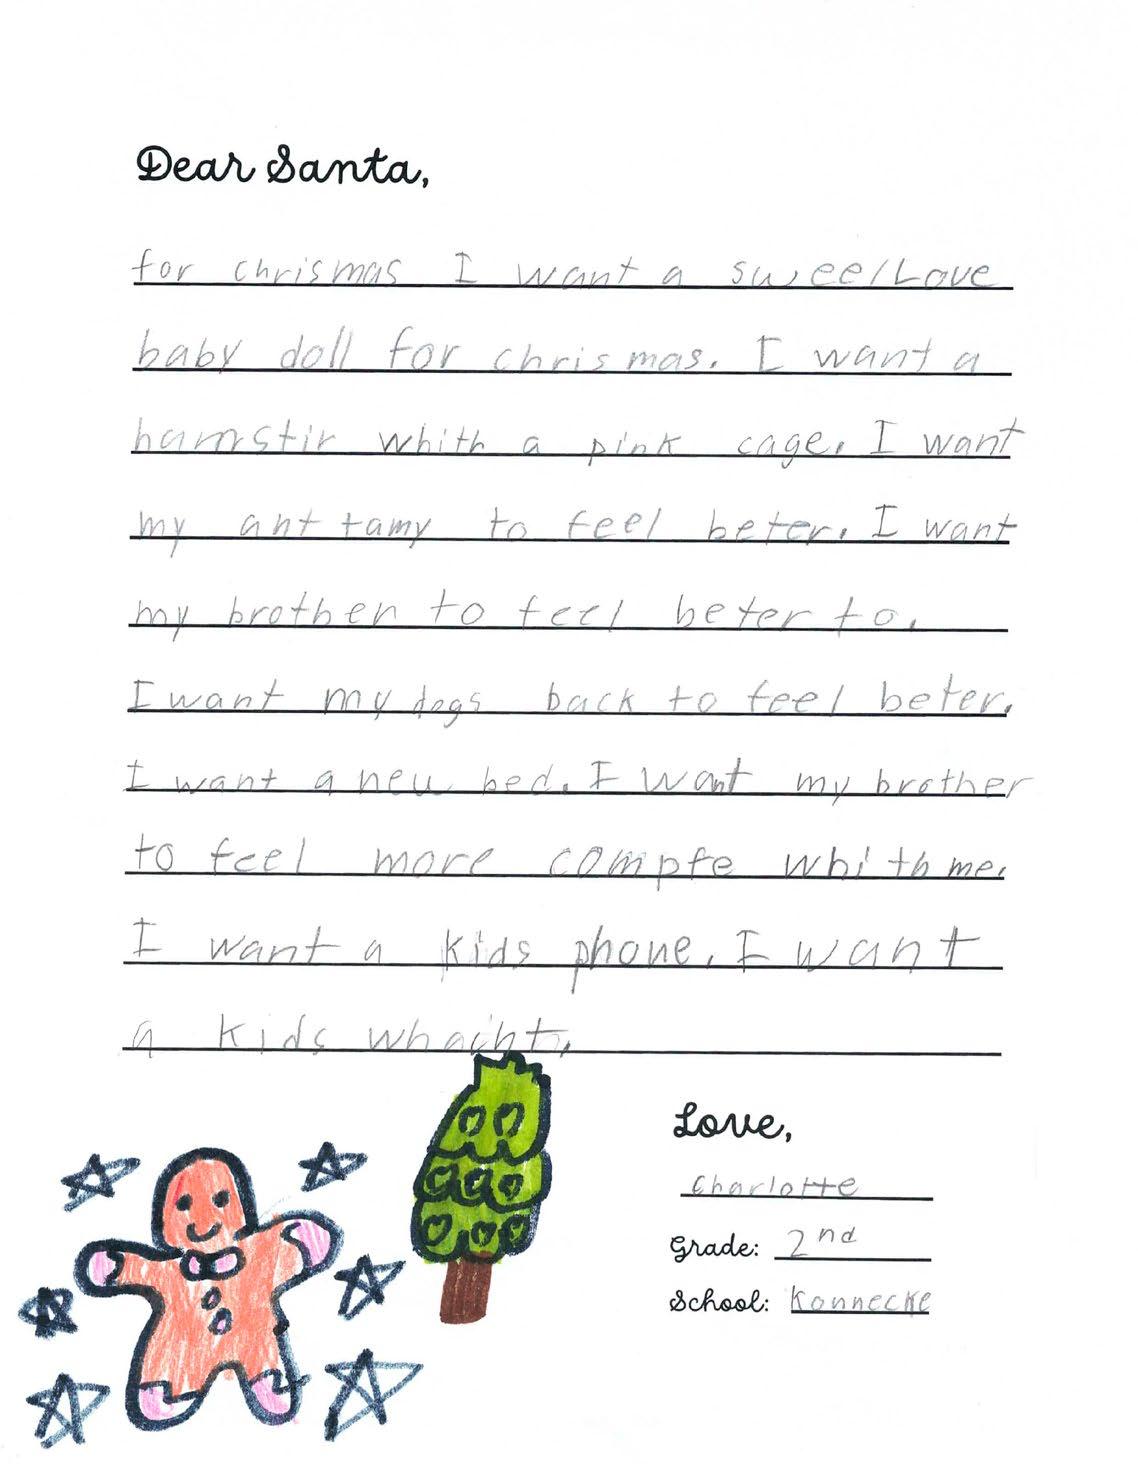 Dear Santa,
for chrismas I want a sweelLove
baby doll for chrismas. I want a
hamstir whith a pink cage. I want
my ant tamy to feel beter. I want
my brother to feel beter to.
I want my dogs back to feel beter.
I want a new bed. I want my brother
to feel more compfe whith me.
I want a kids phone. I want
a kids whacht.
Love,
Charlotte
Grade: 2nd
School: Konnecke